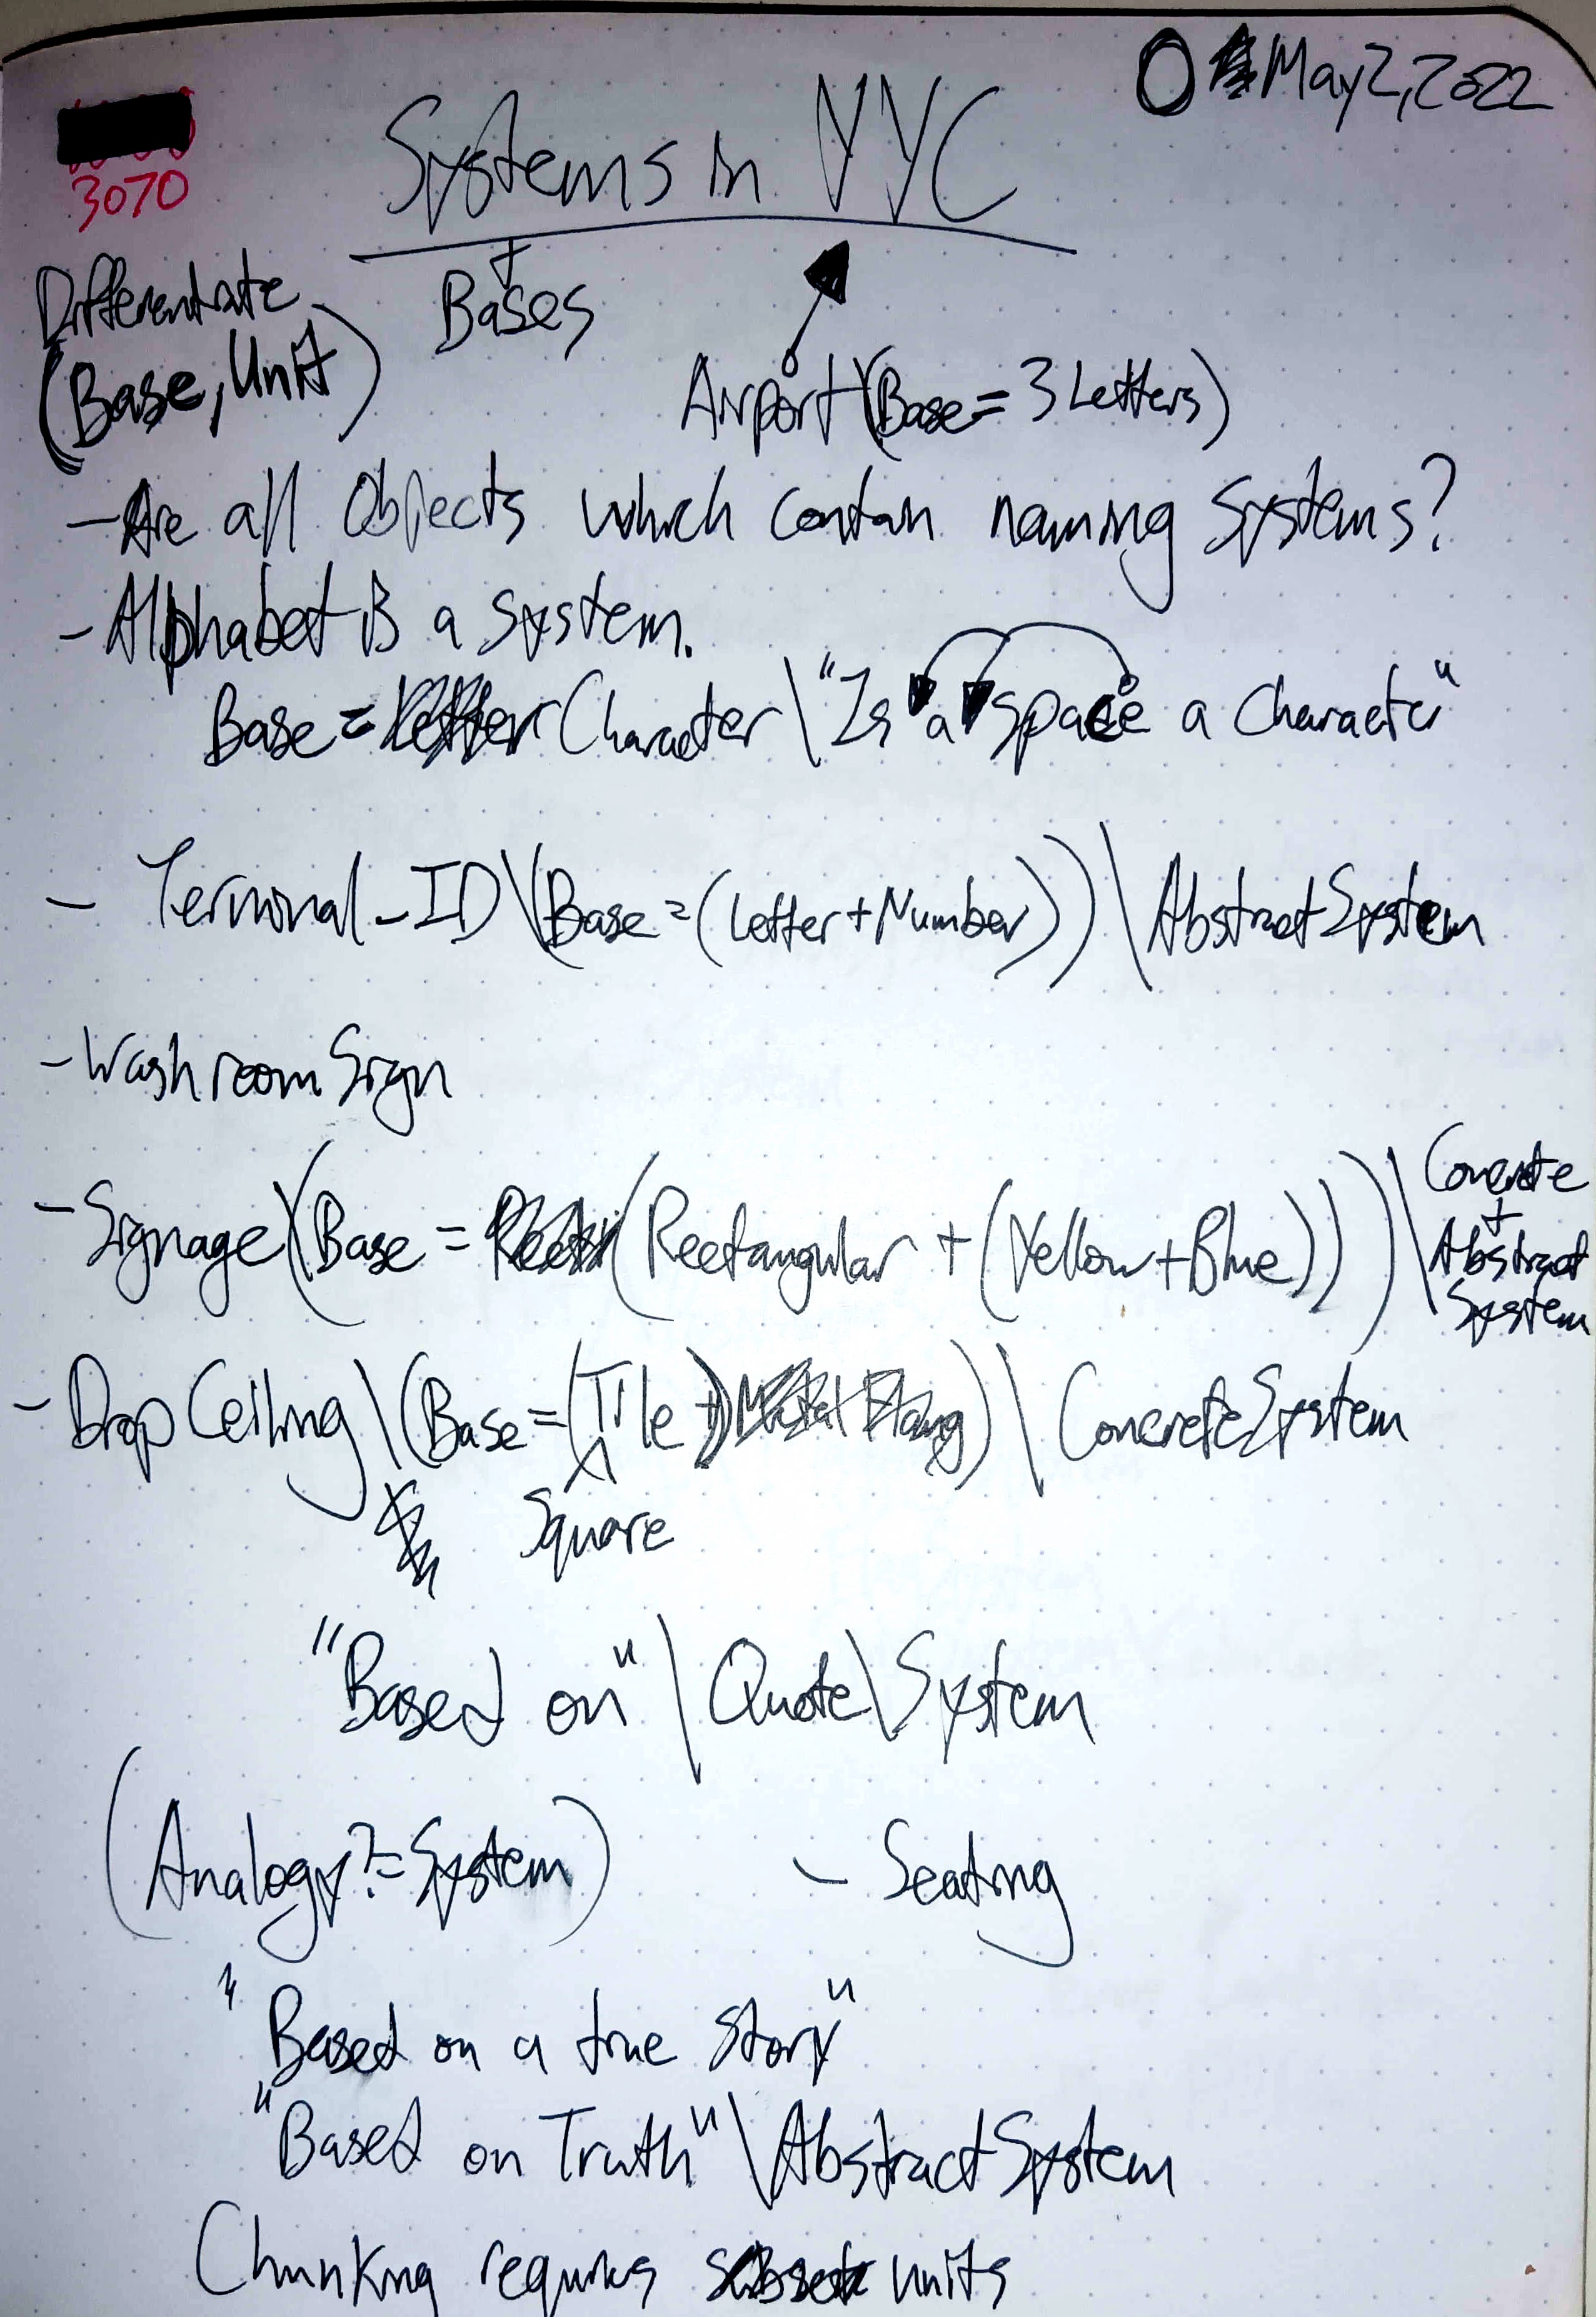 May 2, 2022
3070
Systems in YYC
Differentiate
(Base, Unit)
Bases
Airport \(Base = 3 Letters)
- Are all Objects which contain naming Systems?
- Alphabet is a system.
Base = Character \ "Is a space a character"
- Terminal-ID \(Base = (Letter + Number)) \ Abstract System
- Washroom Sign
- Signage \(Base = (Rectangular + (Yellow + Blue))) \ Concrete + Abstract System
- Drop Ceiling \ (Base = (Tile)) \ Concrete System
Square
"Based on" \ Quote \ System
(Analogy ?= System)
- Seating
"Based on a true story"
"Based on Truth" \ Abstract System
Chunking requires units